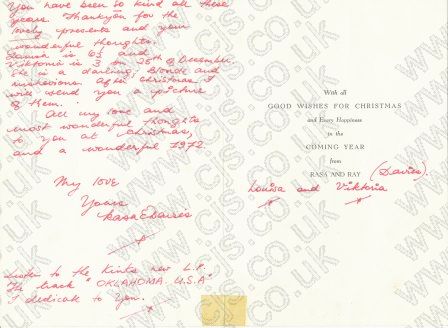 You have been so kind all these
years. Thankyou for the
lovely presents and your
wonderful thoughts.
Louisa is 6½ and
Viktoria is 3 on 25th of December.
She is a darling; blonde and
mischevious. After christmas I
will send you a picture
of them.
All my love and
most wonderful thoughts
to you at Christmas,
and a wonderful 1972.
My love
Yours
Rasa E Davies
x
Listen to the Kinks new L.P.
The track "OKLAHOMA. U.S.A"
I dedicate to You.
x
With all
GOOD WISHES FOR CHRISTMAS
and Every Happiness
in the
COMING YEAR
from
RASA AND RAY (Davies).
Louisa and Viktoria
x x
www.cjs.co.uk